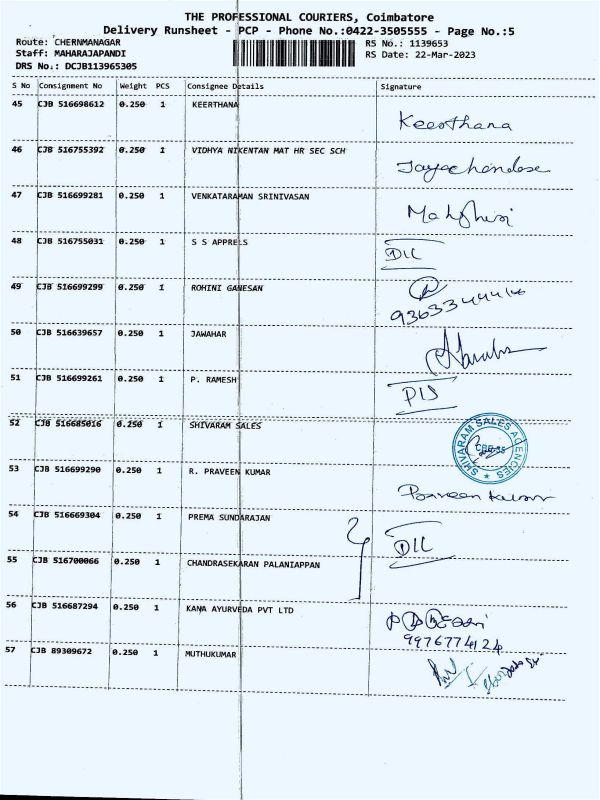 THE PROFESSIONAL COURIERS, Coimbatore
Delivery Runsheet - PCP - Phone No.:0422-3505555 - Page No.:5
Route: CHERNMANAGAR
Staff: MAHARAJAPANDI
DRS No.: DCJB113965305
RS No.: 1139653
RS Date: 22-Mar-2023
S No Consignment No Weight PCS Consignee Details Signature
45 CJB 516698612 0.250 1 KEERTHANA Keerthana
46 CJB 516755392 0.250 1 VIDHYA NIKENTAN MAT HR SEC SCH
47 CJB 516699281 0.250 1 VENKATARAMAN SRINIVASAN
48 CJB 516755031 0.250 1 S S APPRELS
49 CJB 516699299 0.250 1 ROHINI GANESAN
50 CJB 516639657 0.250 1 JAWAHAR
51 CJB 516699261 0.250 1 P. RAMESH
52 CJB 516685016 0.250 1 SHIVARAM SALES SHIVARAM SALES AGENCIES
53 CJB 516699290 0.250 1 R. PRAVEEN KUMAR Praveen kumar
54 CJB 516669304 0.250 1 PREMA SUNDARAJAN
55 CJB 516700066 0.250 1 CHANDRASEKARAN PALANIAPPAN
56 CJB 516687294 0.250 1 KANA AYURVEDA PVT LTD
9976774124
57 CJB 89309672 0.250 1 MUTHUKUMAR